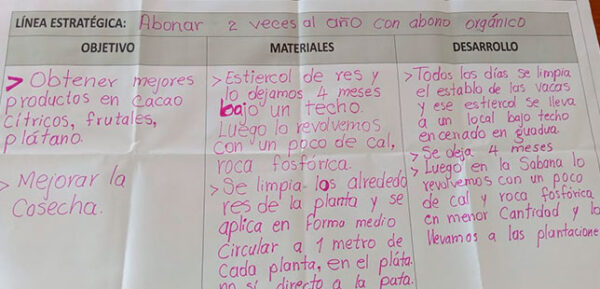 LÍNEA ESTRATÉGICA: Abonar 2 veces al año con abono orgánico
OBJETIVO
> Obtener mejores
productos en cacao
Cítricos, frutales,
plátano.
> Mejorar la
Cosecha.
MATERIALES
> Estiercol de res y
lo dejamos 4 meses
bajo un techo.
Luego lo revolvemos
con un poco de cal,
roca fosfórica.
> Se limpia los alrededo
res de la planta y se
aplica en forma medio
Circular a 1 metro de
Cada planta, en el pláta.
no si directo a la pata.
DESARROLLO
> Todos los días se limpia
el establo de las vacas
y ese estiercol se lleva
a un local bajo techo
encenado en guadua.
> Se deja 4 meses
> Luego en la Sabana lo
revolvemos con un poco
de cal y roca fosfórica
en menor Cantidad y lo
llevamos a las plantacione